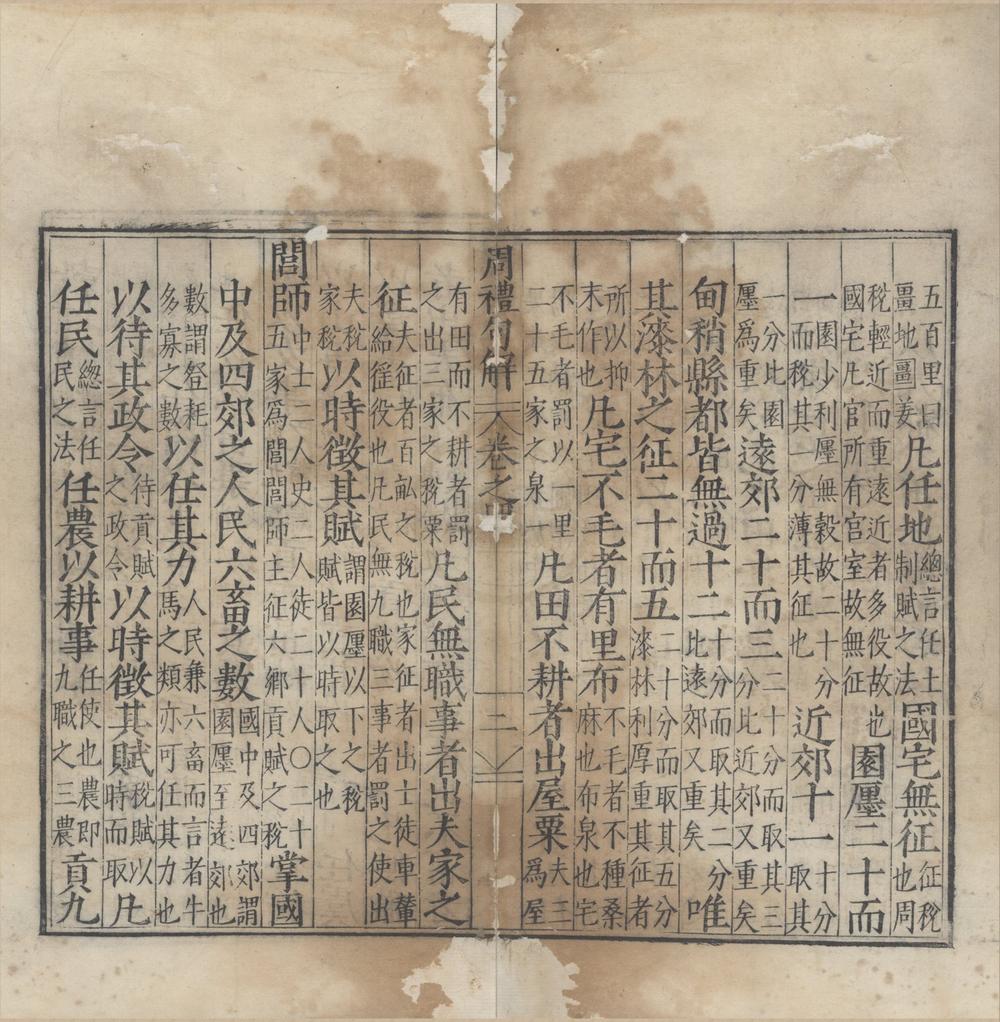 五百里曰畺地畺姜凡任地總言任土制賦之法國宅無征征稅也周
稅輕近而重遠近者多役故也國宅凡官所有宮室故無征園廛二十而
一園少利廛無穀故二十分而稅其一分薄其征也近郊十一十分取其
一分比園廛爲重矣遠郊二十而三二十分而取其三分比近郊又重矣
甸稍縣都皆無過十二十分而取其二分比遠郊又重矣唯
其漆林之征二十而五二十分而取其五分漆林利厚重其征者
所以抑末作也凡宅不毛者有里布不毛者不種桑麻也布泉也宅
不毛者罰以一里二十五家之泉一凡田不耕者出屋粟夫三爲屋
周禮句解 卷之四 二
有田而不耕者罰之出三家之稅粟凡民無職事者出夫家之
征夫征者百畝之稅也家征者出士徒車輦給徭役也凡民無九職三事者罰之使出
夫稅家稅以時徵其賦謂園廛以下之稅賦皆以時取之也
閭師中士二人史二人徒二十人〇二十五家爲閭閭師主征六鄉貢賦之稅掌國
中及四郊之人民六畜之數國中及四郊謂園廛至遠郊也
數謂登耗多寡之數以任其力人民兼六畜而言者牛馬之類亦可任其力也
以待其政令待貢賦之政令以時徵其賦稅賦以時而取凡
任民總言任民之法任農以耕事任使也農即九職之三農貢九